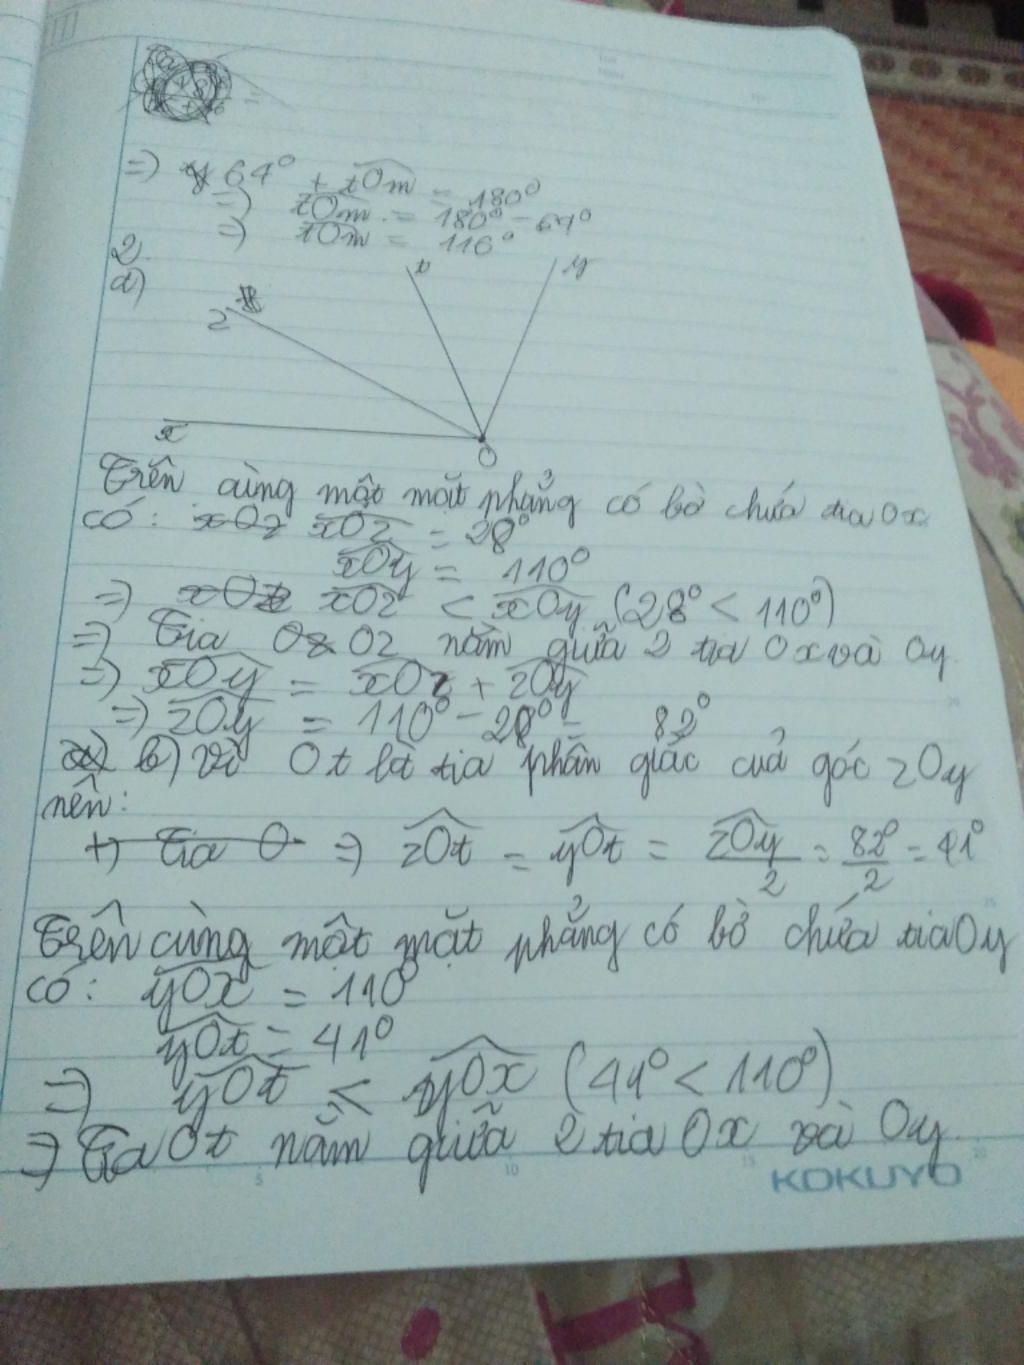 =) 64° + tOm = 180°
=) tOm = 180° - 64°
=) tOm = 116°
2.
a)
t
y
z
x
O
Trên cùng một mặt phẳng có bờ chứa tia Ox
có: xOz xOz = 28°
xOy = 110°
=) xOz xOz < xOy (28° < 110°)
=) Tia Oz nằm giữa 2 tia Ox và Oy
=) xOy = xOz + zOy
=) zOy = 110° - 28° = 82°
b) Vì Ot là tia phân giác của góc zOy
nên:
+) Tia O =) zOt = yOt = zOy/2 = 82°/2 = 41°
Trên cùng một mặt phẳng có bờ chứa tia Oy
có: yOx = 110°
yOt = 41°
=) yOt < yOx (41° < 110°)
=) Tia Ot nằm giữa 2 tia Ox và Oy.
KOKUYO